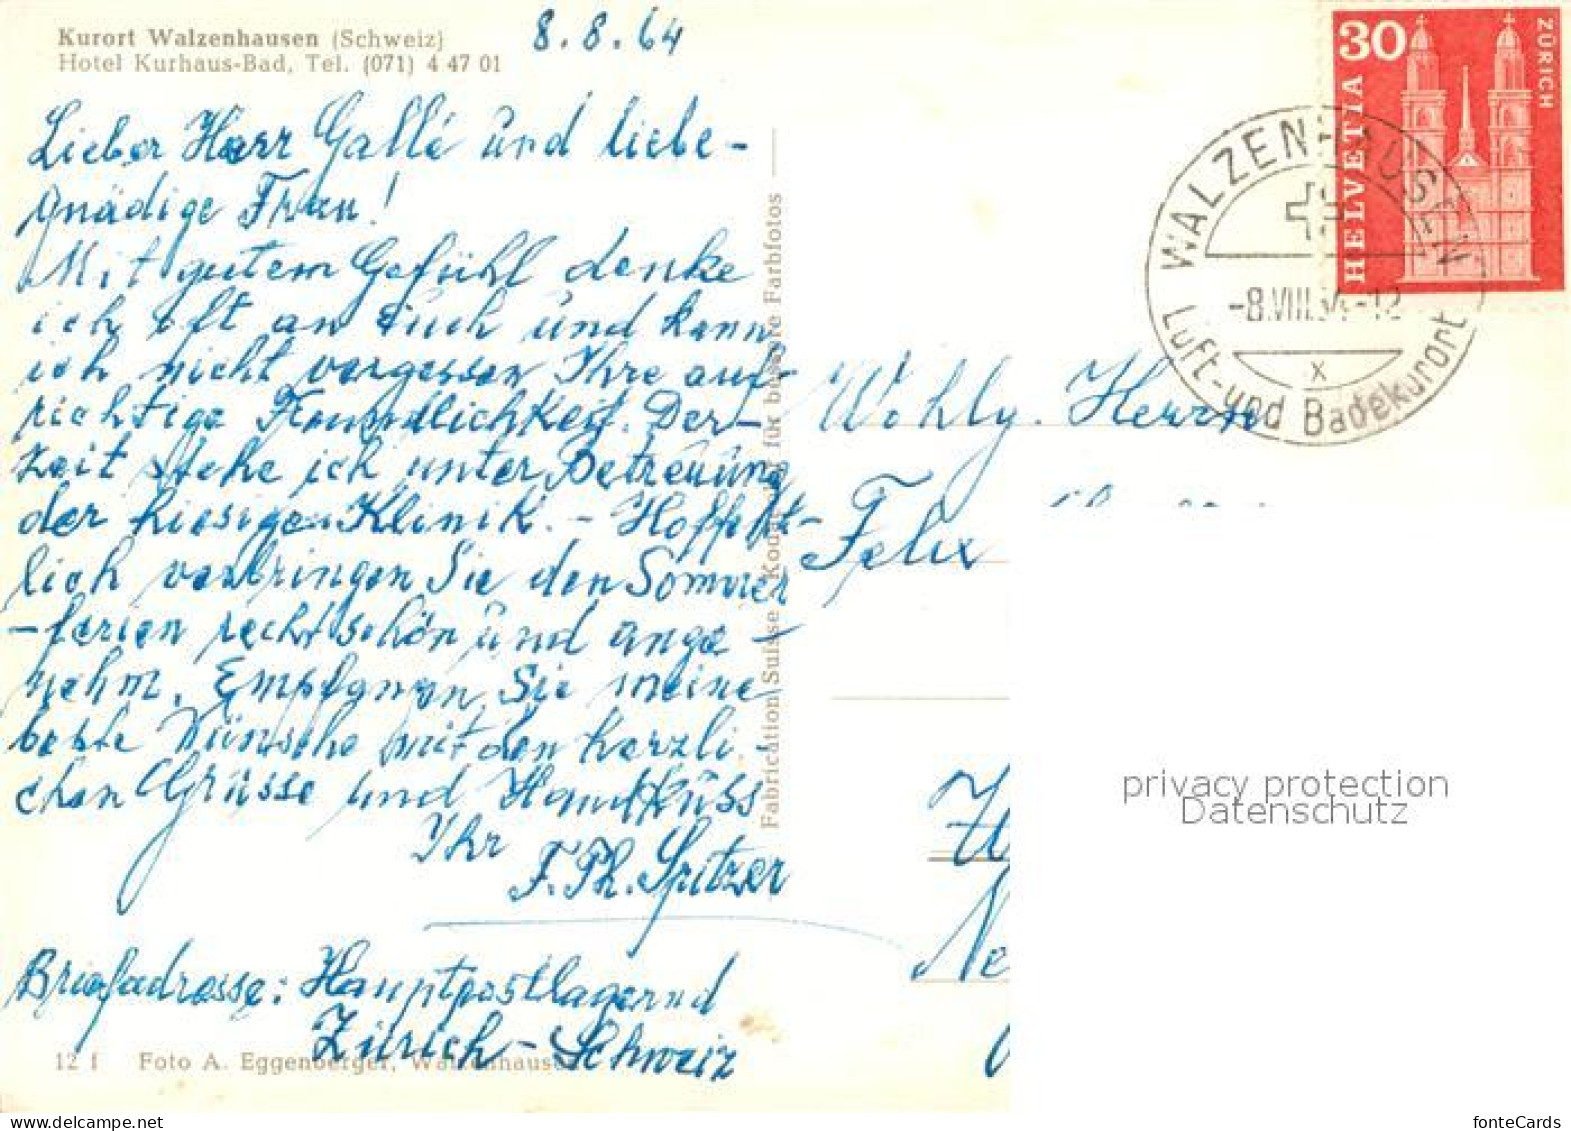 Kurort Walzenhausen (Schweiz)
Hotel Kurhaus-Bad, Tel. (071) 4 47 01
8.8.64
Lieber Herr Gallé und liebe-
gnädige Frau!
Mit gutem Gefühl denke
ich oft an Euch und kann
ich nicht vergessen Ihre auf-
richtige Freundlichkeit. Der-
zeit stehe ich unter Betreuung
der hiesigen Klinik. - Hoffent-
lich verbringen Sie den Sommer
-ferien recht schön und ange-
nehm. Empfangen Sie meine
beste Wünsche mit den herzli-
chen Grüsse und Handküss
Ihr
F. Th. Spitzer
Briefadresse: Hauptpostlagernd
Zürich-Schweiz
12 f Foto A. Eggenberger, Walzenhausen
Fabrication Suisse Kodachrom für bessere Farbfotos
30
HELVETIA
ZÜRICH
WALZENHAUSEN
-8.VIII.64-12
X
Luft-und Badekurort
Wohlg. Herrn
Felix
Ne
privacy protection
Datenschutz
fonteCards